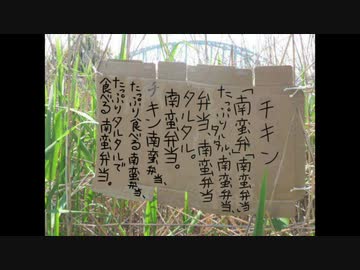 チキン
「南蛮弁「南蛮弁当、
たっぷりタルタル、南蛮弁当、
弁当、南蛮
タルタル。
南蛮弁当。
チキン南蛮弁当、
たっぷり食べる南蛮弁当、
たっぷりタルタルで
食べる南蛮弁当。